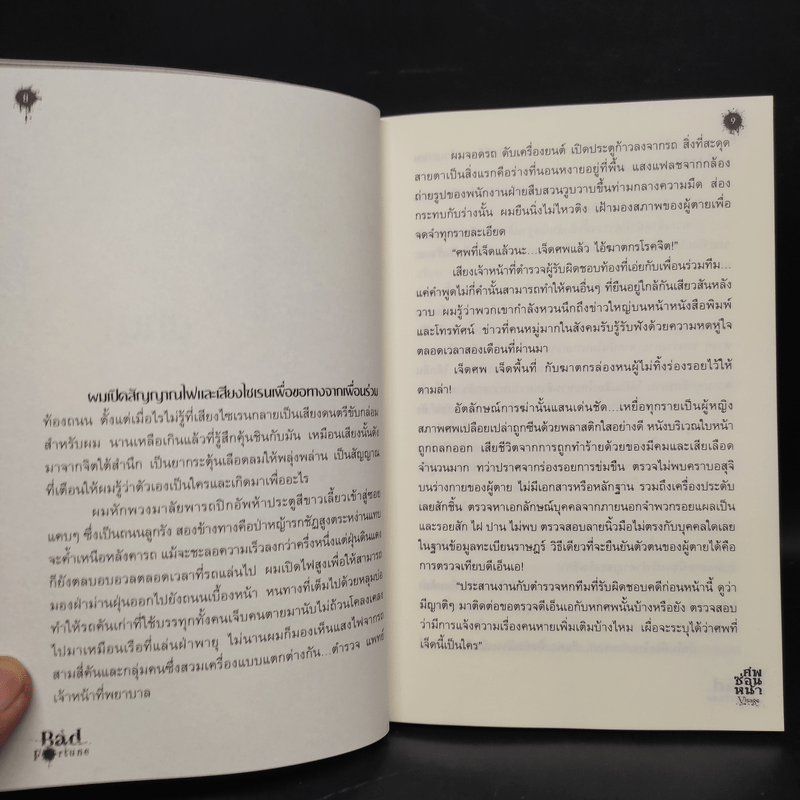 8
ผมเปิดสัญญาณไฟและเสียงไซเรนเพื่อขอทางจากเพื่อนร่วม
ท้องถนน ตั้งแต่เมื่อไรไม่รู้ที่เสียงไซเรนกลายเป็นเสียงดนตรีขับกล่อม
สำหรับผม นานเหลือเกินแล้วที่รู้สึกคุ้นชินกับมัน เหมือนเสียงนั้นดัง
มาจากจิตใต้สำนึก เป็นยากระตุ้นเลือดลมให้พลุ่งพล่าน เป็นสัญญาณ
ที่เตือนให้ผมรู้ว่าตัวเองเป็นใครและเกิดมาเพื่ออะไร
ผมหักพวงมาลัยพารถปิกอัพห้าประตูสีขาวเลี้ยวเข้าสู่ซอย
แคบๆ ซึ่งเป็นถนนลูกรัง สองข้างทางคือป่าหญ้ารกชัฏสูงตระหง่านแทบ
จะค้ำเหนือหลังคารถ แม้จะชะลอความเร็วลงกว่าครึ่งหนึ่งแต่ฝุ่นดินแดง
ก็ยังตลบอบอวลตลอดเวลาที่รถแล่นไป ผมเปิดไฟสูงเพื่อให้สามารถ
มองฝ่าม่านฝุ่นออกไปยังถนนเบื้องหน้า หนทางที่เต็มไปด้วยหลุมบ่อ
ทำให้รถคันเก่าที่ใช้บรรทุกทั้งคนเจ็บคนตายมานับไม่ถ้วนโคลงเคลง
ไปมาเหมือนเรือที่แล่นฝ่าพายุ ไม่นานผมก็มองเห็นแสงไฟจากรถ
สามสี่คันและกลุ่มคนซึ่งสวมเครื่องแบบแตกต่างกัน...ตำรวจ แพทย์
เจ้าหน้าที่พยาบาล
Bad
Fortune
9
ผมจอดรถ ดับเครื่องยนต์ เปิดประตูก้าวลงจากรถ สิ่งที่สะดุด
สายตาเป็นสิ่งแรกคือร่างที่นอนหงายอยู่ที่พื้น แสงแฟลชจากกล้อง
ถ่ายรูปของพนักงานฝ่ายสืบสวนวูบวาบขึ้นท่ามกลางความมืด ส่อง
กระทบกับร่างนั้น ผมยืนนิ่งไม่ไหวติง เฝ้ามองสภาพของผู้ตายเพื่อ
จดจำทุกรายละเอียด
“ศพที่เจ็ดแล้วนะ...เจ็ดศพแล้ว ไอ้ฆาตกรโรคจิต!”
เสียงเจ้าหน้าที่ตำรวจผู้รับผิดชอบท้องที่เอ่ยกับเพื่อนร่วมทีม...
แค่คำพูดไม่กี่คำนั้นสามารถทำให้คนอื่นๆ ที่ยืนอยู่ใกล้กันเสียวสันหลัง
วาบ ผมรู้ว่าพวกเขากำลังหวนนึกถึงข่าวใหญ่บนหน้าหนังสือพิมพ์
และโทรทัศน์ ข่าวที่คนหมู่มากในสังคมรับรู้รับฟังด้วยความหดหู่ใจ
ตลอดเวลาสองเดือนที่ผ่านมา
เจ็ดศพ เจ็ดพื้นที่ กับฆาตกรล่องหนผู้ไม่ทิ้งร่องรอยไว้ให้
ตามล่า!
อัตลักษณ์การฆ่านั้นแสนเด่นชัด...เหยื่อทุกรายเป็นผู้หญิง
สภาพศพเปลือยเปล่าถูกซีนด้วยพลาสติกใสอย่างดี หนังบริเวณใบหน้า
ถูกถลกออก เสียชีวิตจากการถูกทำร้ายด้วยของมีคมและเสียเลือด
จำนวนมาก ทว่าปราศจากร่องรอยการข่มขืน ตรวจไม่พบคราบอสุจิ
บนร่างกายของผู้ตาย ไม่มีเอกสารหรือหลักฐาน รวมถึงเครื่องประดับ
เลยสักชิ้น ตรวจหาเอกลักษณ์บุคคลจากภายนอกจำพวกรอยแผลเป็น
และรอยสัก ไฝ ปาน ไม่พบ ตรวจสอบลายนิ้วมือไม่ตรงกับบุคคลใดเลย
ในฐานข้อมูลทะเบียนราษฎร์ วิธีเดียวที่จะยืนยันตัวตนของผู้ตายได้คือ
การตรวจเทียบดีเอ็นเอ!
“ประสานงานกับตำรวจหกทีมที่รับผิดชอบคดีก่อนหน้านี้ ดูว่า
มีญาติๆ มาติดต่อขอตรวจดีเอ็นเอกับหกศพนั้นบ้างหรือยัง ตรวจสอบ
ว่ามีการแจ้งความเรื่องคนหายเพิ่มเติมบ้างไหม เผื่อจะระบุได้ว่าศพที่
เจ็ดนี้เป็นใคร”
ศพ
ซ่อน
หน้า
Visage